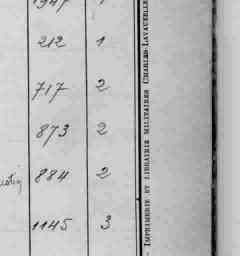 1947 1
212 1
717 2
873 2
884 2
1145 3
IMPRIMERIE ET LIBRAIRIE MILITAIRES CHARLES-LAVAUZELLE